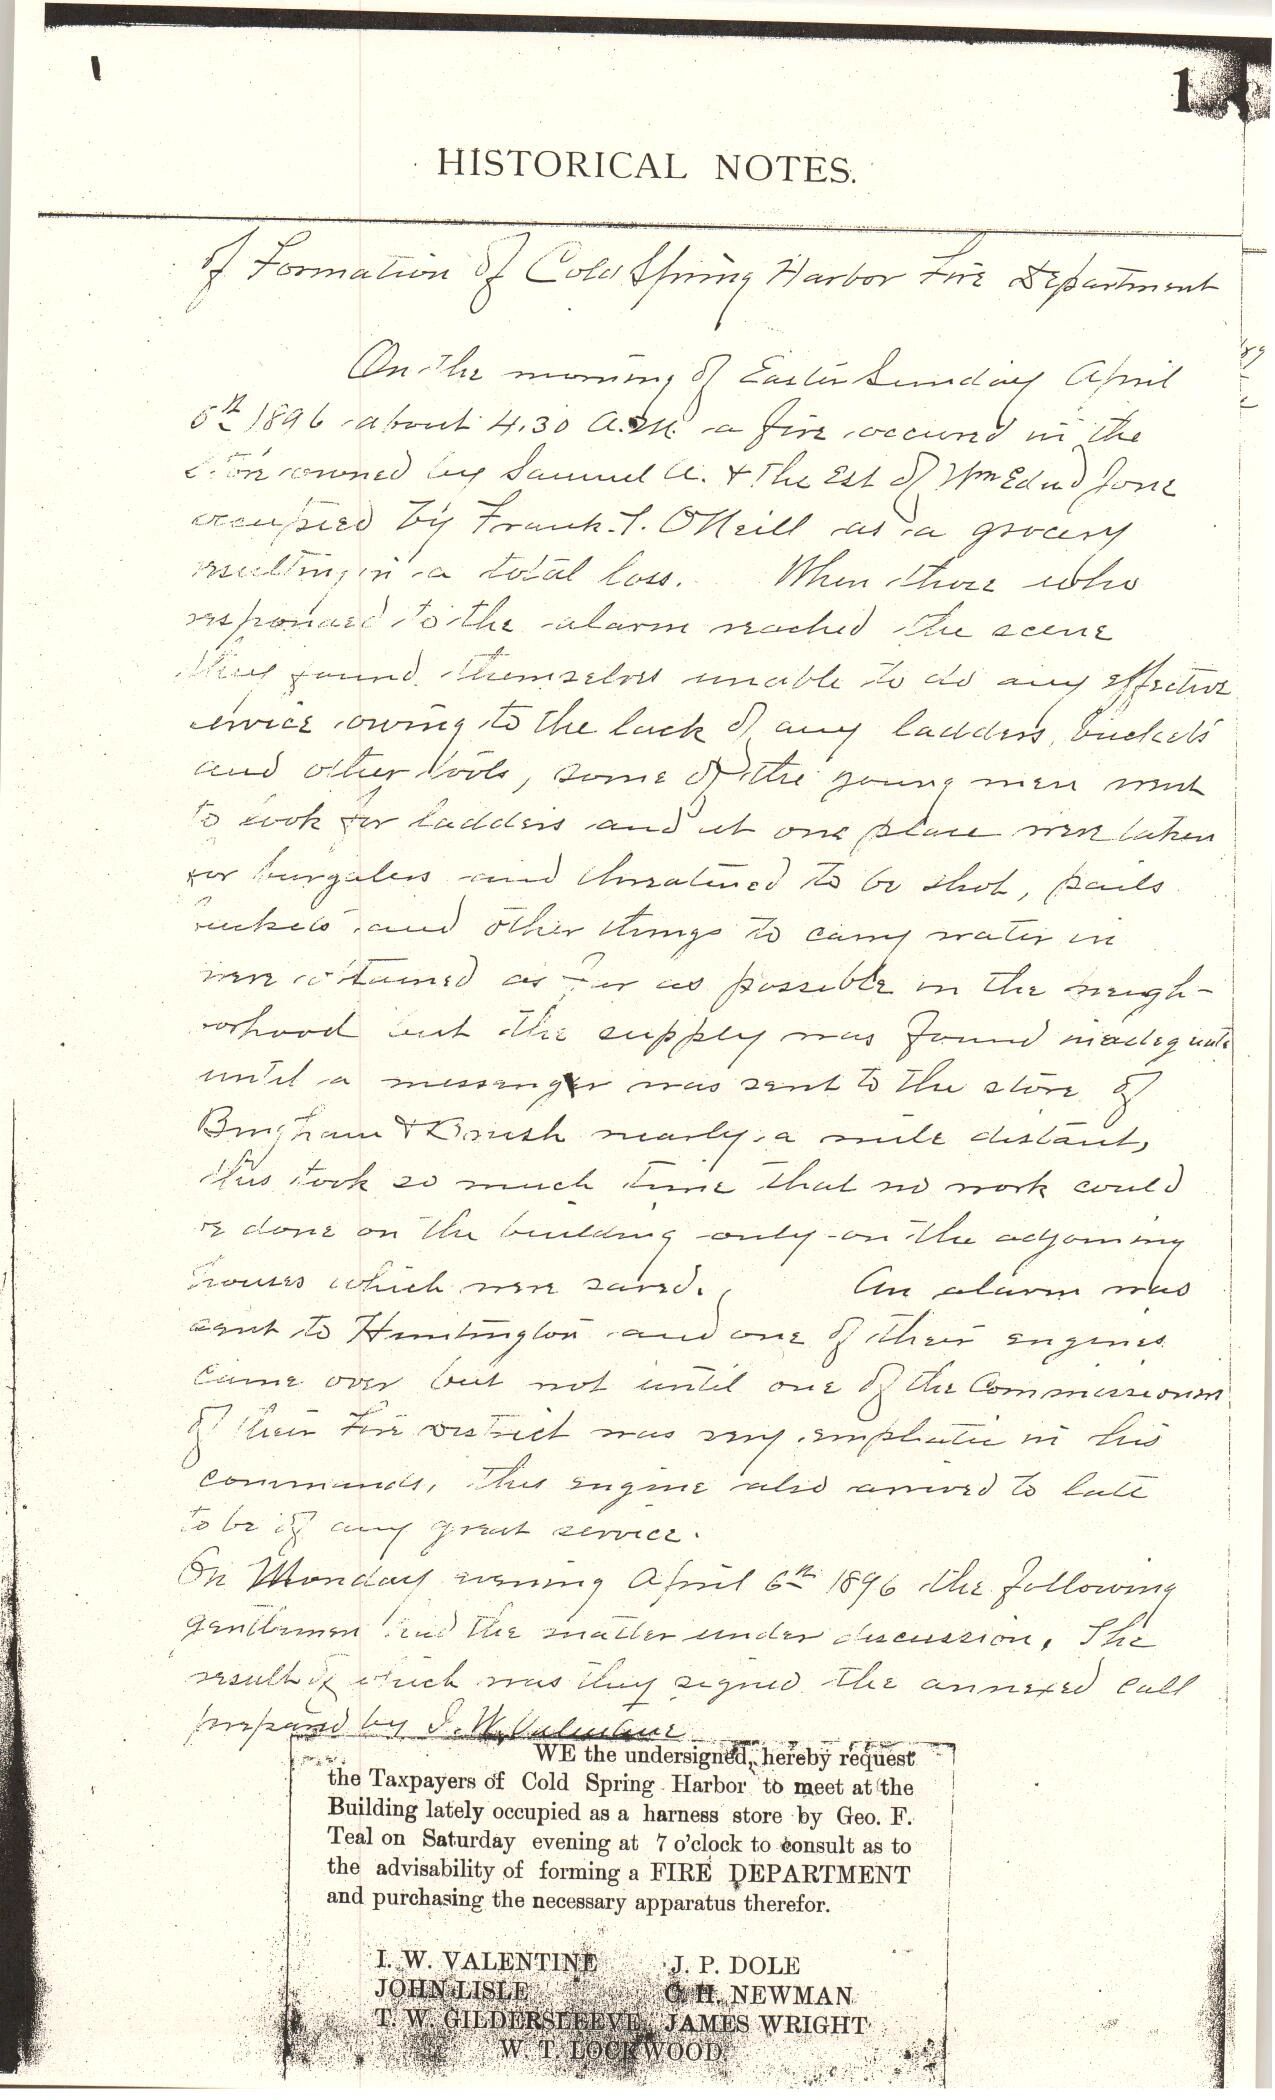 1
HISTORICAL NOTES.
of Formation of Cold Spring Harbor Fire Department
On the morning of Easter Sunday April
5th 1896 about 4.30 A.M. a fire occured in the
Store owned by Samuel A. & the Est of Wm Edwd Jone
occupied by Frank. T. O'Neill as a grocery
resulting in a total loss. When those who
responded to the alarm reached the scene
they found themselves unable to do any effective
service owing to the lack of any ladders, buckets
and other tools, some of the young men went
to look for ladders and at one place were taken
for burgalers and threatened to be shot, pails
buckets and other things to carry water in
were obtained as far as possible in the neigh-
borhood but the supply was found inadequate
until a messenger was sent to the store of
Bingham & Brush nearly a mile distant,
this took so much time that no work could
be done on the building only on the adjoining
houses which were saved. An alarm was
sent to Huntington and one of their engines
came over but not until one of the Commissioners
of their Fire District was very emphatic in his
commands, this engine also arrived to late
to be of any great service.
On Monday evening April 6th 1896 the following
gentlemen had the matter under discussion. The
result of which was they signed the annexed call
prepared by I. W. Valentine
WE the undersigned, hereby request
the Taxpayers of Cold Spring Harbor to meet at the
Building lately occupied as a harness store by Geo. F.
Teal on Saturday evening at 7 o'clock to consult as to
the advisability of forming a FIRE DEPARTMENT
and purchasing the necessary apparatus therefor.
I. W. VALENTINE J. P. DOLE
JOHN LISLE C. H. NEWMAN
T. W. GILDERSLEEVE JAMES WRIGHT
W. T. LOCKWOOD